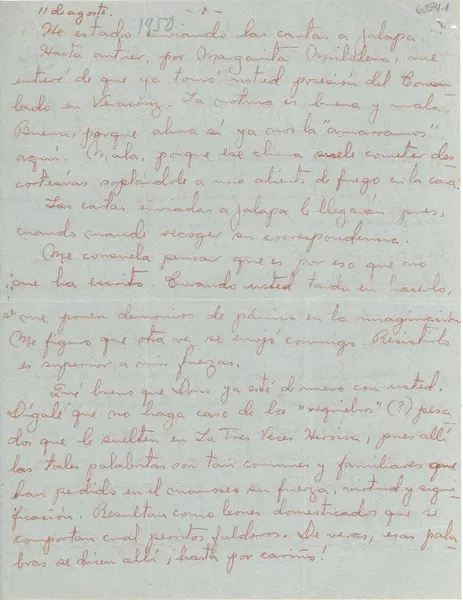 11 de agosto. 1950 -1- G2341
He estado enviando las cartas a Jalapa.
Hasta antier, por Margarita Michelena, me
enteré de que ya tomó usted posesión del Consu-
lado en Veracruz. La noticia es buena y mala.
Buena, porque ahora sí ya nos la "amarramos"
aquí. Mala, porque ese clima suele cometer des-
cortesías soplándole a uno aliento de fuego en la cara.
Las cartas enviadas a Jalapa le llegarán, pues,
cuando mande recoger su correspondencia.
Me consuela pensar que es por eso, que no
me ha escrito. Cuando usted tarda en hacerlo,
se me ponen demonios de pánico en la imaginación.
Me figuro que otra vez se enojó conmigo. Resistirlo
es superior a mis fuerzas.
Qué bueno que Doris ya esté de nuevo con usted.
Dígale que no haga caso de los "requiebros" (?) pesa-
dos que le suelten en La Tres Veces Heroica, pues allí
las tales palabritas son tan comunes y familiares que
han perdido en el manoseo su fuerza, virtud y signi-
ficación. Resultan como leones domesticados que se
comportan cual perritos falderos. De veras, esas pala-
bras se dicen allí ¡hasta por cariño!